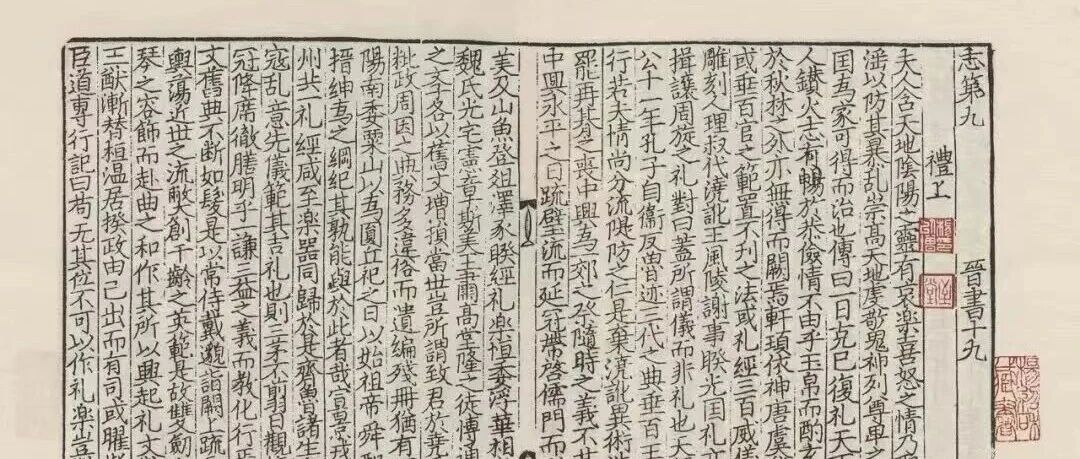 志第九 晉書十九
禮上
夫人含天地陰陽之靈有哀楽喜怒之情乃
滛以防其暴乱崇髙天地虔敬鬼神列尊卑之
国為家可得而治也傳曰一日克已復礼天
人鑚火志有暢於恭儉情不由乎玉帛而酌
於秋林之外亦無得而闕焉軒頊依神唐虞
或垂百官之範置不刊之法或礼經三百威儀
雕刻人理叔代澆訛王風陵謝事睽光国礼
揖讓周旋之礼對曰蓋所謂儀而非礼也天
公十一年孔子自衛反魯迹三代之典垂百王
行若夫情尚分流隄防之仁是棄澆訛異術
罷再朞之喪中興為郊之祭隨時之義不其
中興永平之日疏璧流而延冠帶啓儒門而
美久山魚登俎澤豕睽經礼楽恒委浮華相
魏氏光宅憲章斯美王肅髙堂隆之徒博通
之文子各以舊文增損當世豈所謂致君於尭
粃政周因之典務多違俗而遺編殘冊猶有
陽南委粟山以為圜丘祀之日以始祖帝舜
搢紳為之綱紀其孰能與於此者哉宣景戎
州共礼經咸至楽器同歸於是齊魯諸生
寇乱意先儀範其吉礼也則三茅不剪日觀
冠降席徹膳明乎一謙三益之義而教化行
文舊典不断如髪是以常侍戴邈詣闕上疏
輿蕩近世之流敝創千齡之英範是故雙劔
琴之容飾而赴曲之和作其所以興起礼文
猷漸替桓温居揆政由己出而有司或曜
臣道專行記曰苟无其位不可以作礼楽豈